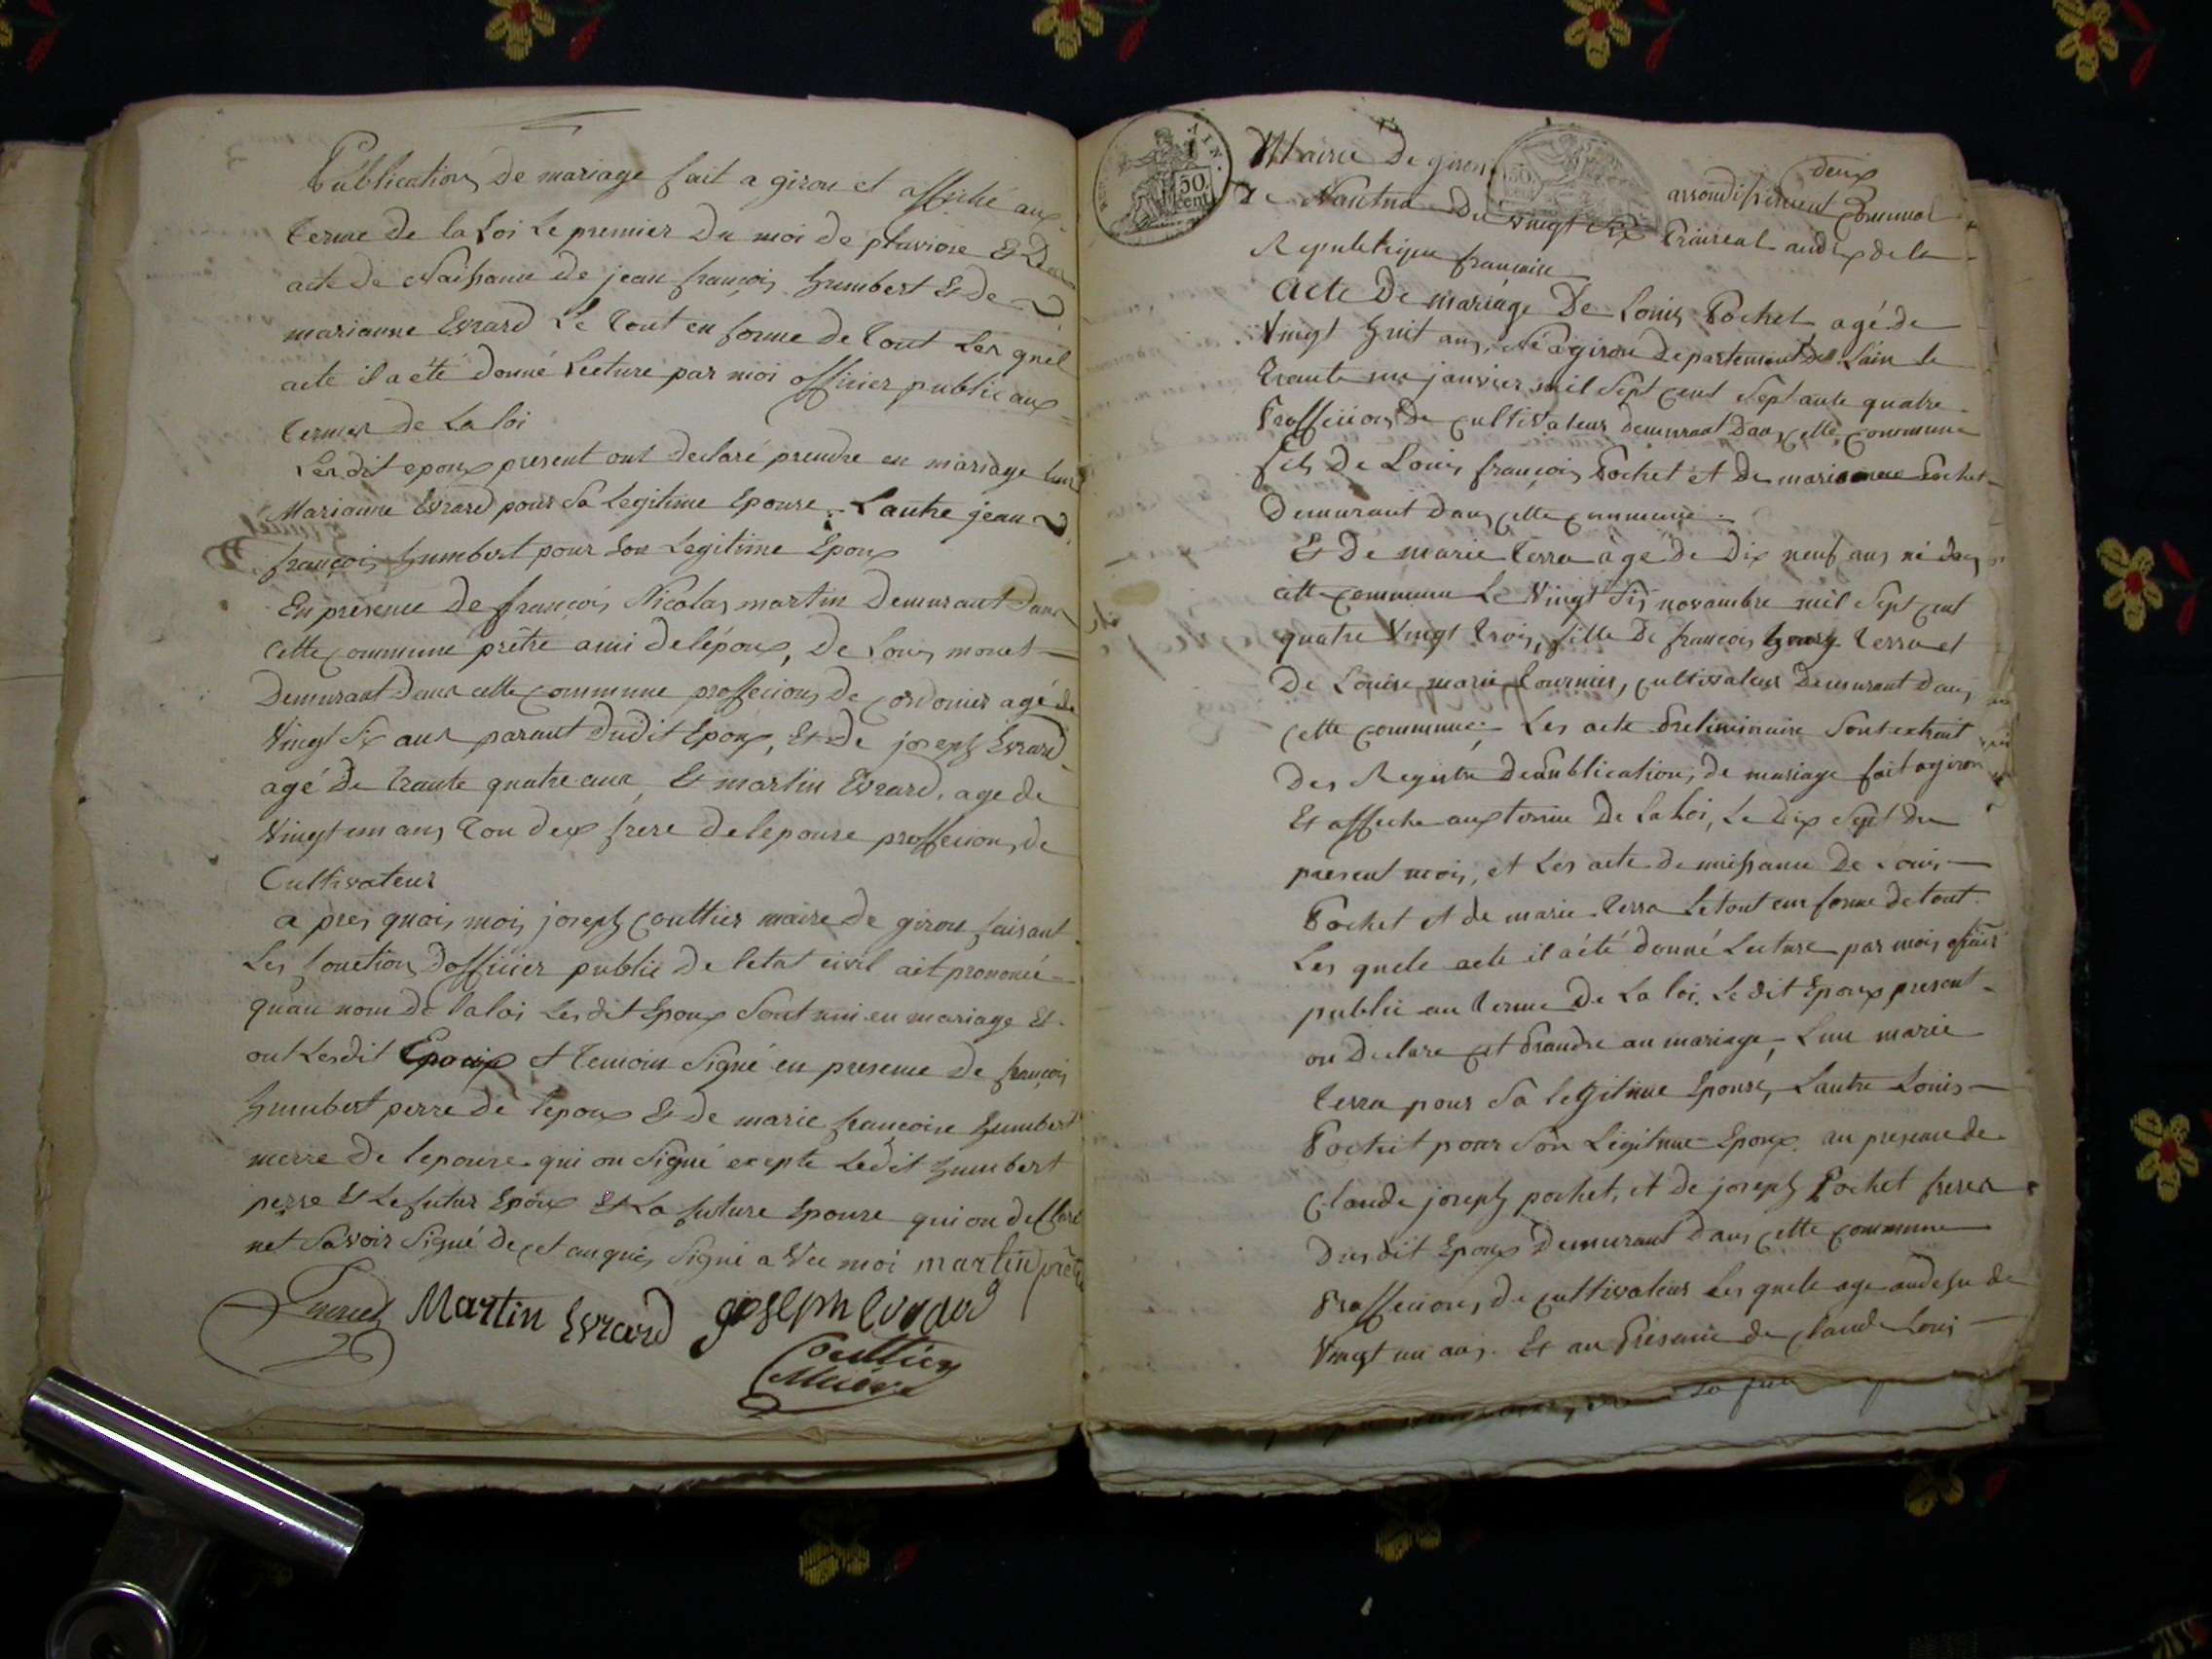 Publication de mariage fait a giron et affiché aux
terme de la Loi Le premier du moi de pluviose Et Des
acte de Naissance de jean françois humbert Et de
marianne Evrard Le tout en forme de tout Les quel
acte il a été donné lecture par moi officier public aux
termes de La loi
Les dit epoux present ont declaré prendre en mariage lun
Marianne Evrard pour Sa Legitime Epouse. Lautre jean
françois humbert pour Son Legitime Epoux
En présence de françois Nicolas martin Demurant dans
cette commune prêtre ami de lépoux, De Louis monet
Demurant dans cette commune proffecions de cordonier agé de
Vingt Six ans parant dudit Epoux, Et de joseph Evrard
agé De trante quatre ans, Et martin Evrard, age de
Vingt un ans tou deux frere de lepouse proffecions de
Cultivateur
a pres quois moi joseph Couttier maire de giron faisant
Les fonction dofficier public De letat civil ait prononcé
quau nom de la loi Les dit Epoux Sont uni en mariage Et
ont Lesdit Epoux et temoin Signé en presence De françois
humbert perre de lepoux Et de marie françoise humbert
merre de lepouse qui on Signé exepte Ledit humbert
perre Et Le futur Epoux Et La future Epouse qui on déclaré
net Savoir Signé de cet anquis Signé a Vec moi martin prêtre
Martin Evrard joseph Evrard
Couttier
Maire
AIN.
50
cent
50
cent
deux
Mairie De giron arrondissement Communal
De Nantua Du vingt Six Prairial an dix de la
Republique française
Acte De mariage De Louis Pochet agé de
Vingt huit ans, Né a giron Departement De Lain le
trante un janvier mil Sept cent Septante quatre
Proffecions De cultivateur demurant Dans cette commune
fils De Louis françois Pochet et De marianne Pochet
Demurant Dans cette commune.
Et De marie terra agé De Dix neuf ans né dans
cette commune Le Vingt Six novambre mil Sept cent
quatre Vingt trois, fille De françois terra et
De Louise marie tournier, cultivateur Demurant Dans
cette commune. Les acte Preliminaire Sont extrait
Des Registre De Publications de mariage fait a giron
Et affiche aux termine De La Loi, Le Dix Sept Du
present mois, et Les acte de naissance De Louis
Pochet et de marie terra Le tout en forme de tout.
Les quele acte il a été donné Lecture par mois officier
public au terme De La loi. Le dit Epoux present
on Declare et Prandre an mariage, Lun marie
terra pour Sa legitime Epouse, Lautre Louis
Pochet pour Son Légitime Epoux. an presence de
Claude joseph pochet, et De joseph Pochet freres
Dudit Epoux Demurant Dans cette commune
Proffecions de cultivateur Les quele age audesu de
Vingt un ans. Et an Présence de Claude Louis